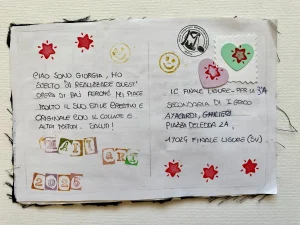 CIAO SONO GIORGIA, HO
SCELTO DI REALIZZARE QUEST'
OPERA DI BAJ PERCHÉ MI PIACE
MOLTO IL SUO STILE CREATIVO E
ORIGINALE CON IL COLLAGE E
ALTRI MATERIALI. SALUTI!
MAIL ART
2025
IC FINALE LIGURE - PER LA 3A
SECONDARIA DI I GRADO
PIAZZA DELEDDA 2A,
17024 FINALE LIGURE (SV)